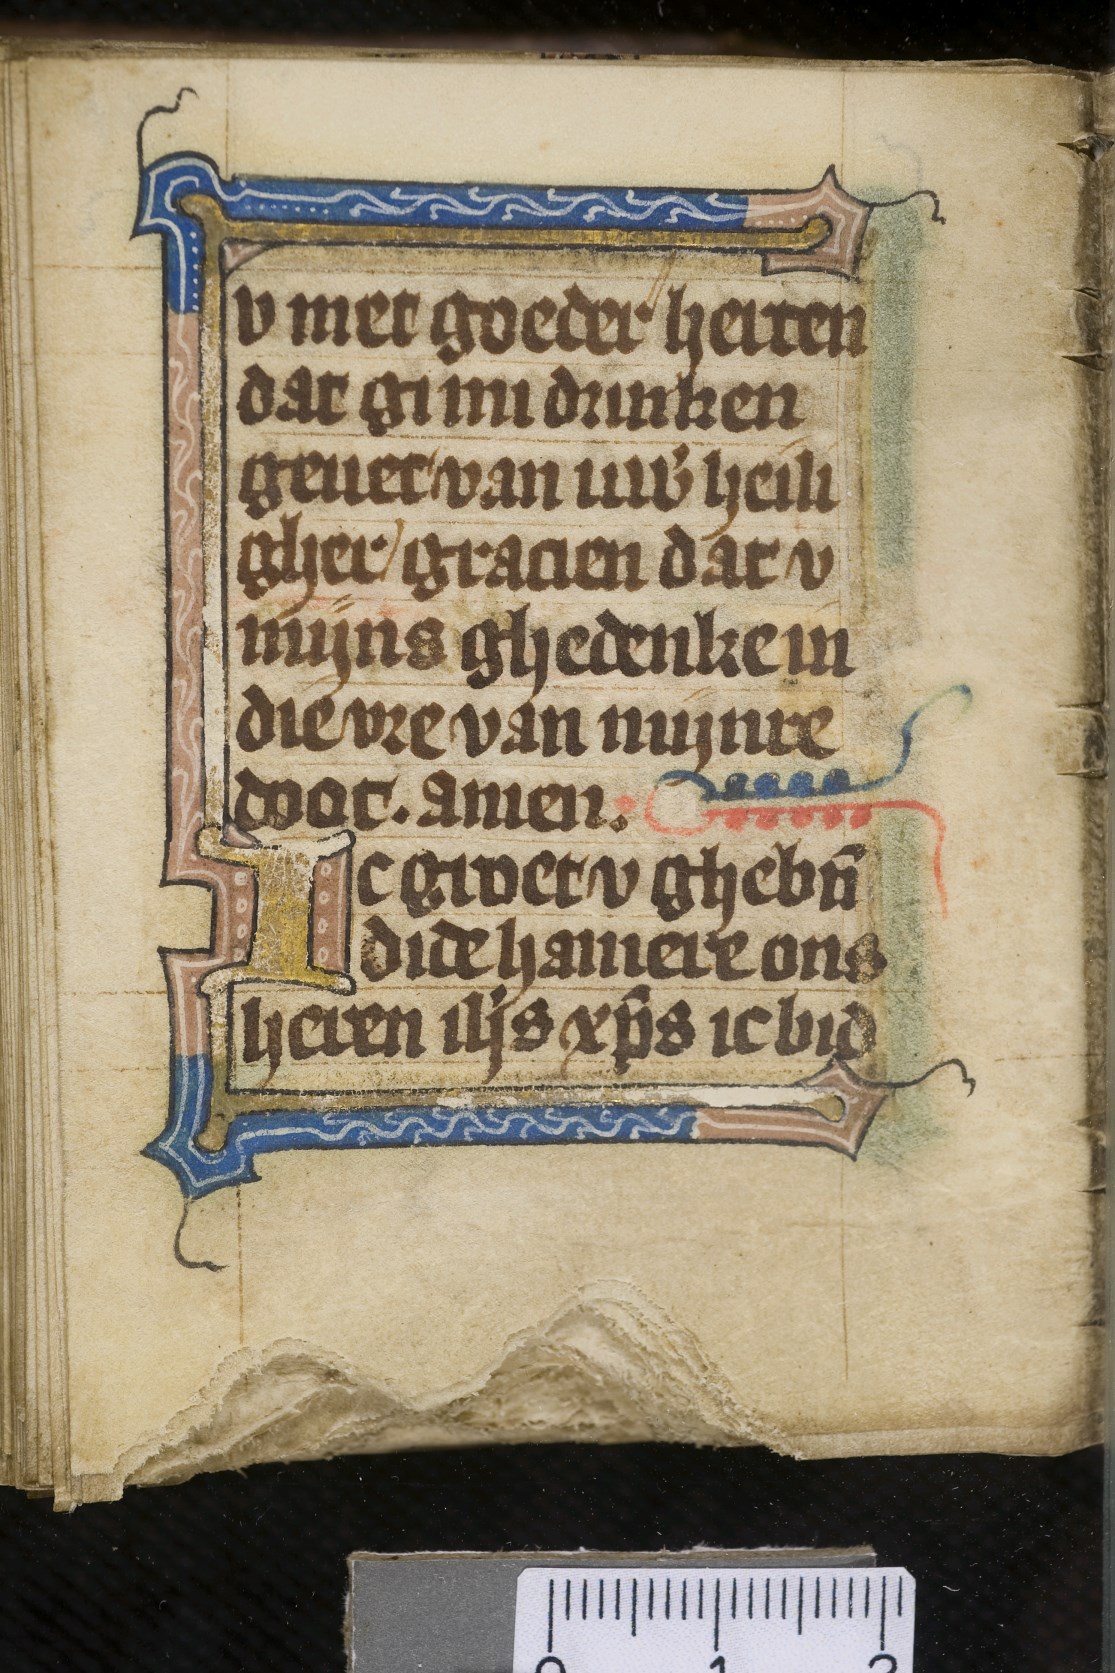 v met goeder herten
dat gi mi drinken
geuet van uuwͬ heili
gher gracien dat v
mijns ghedenke in
die vre van mijnre
doot. amen.
Ic gruet v ghebn̄
dide hamere ons
heren ih̄s xp̄s ic bid
0 1 2